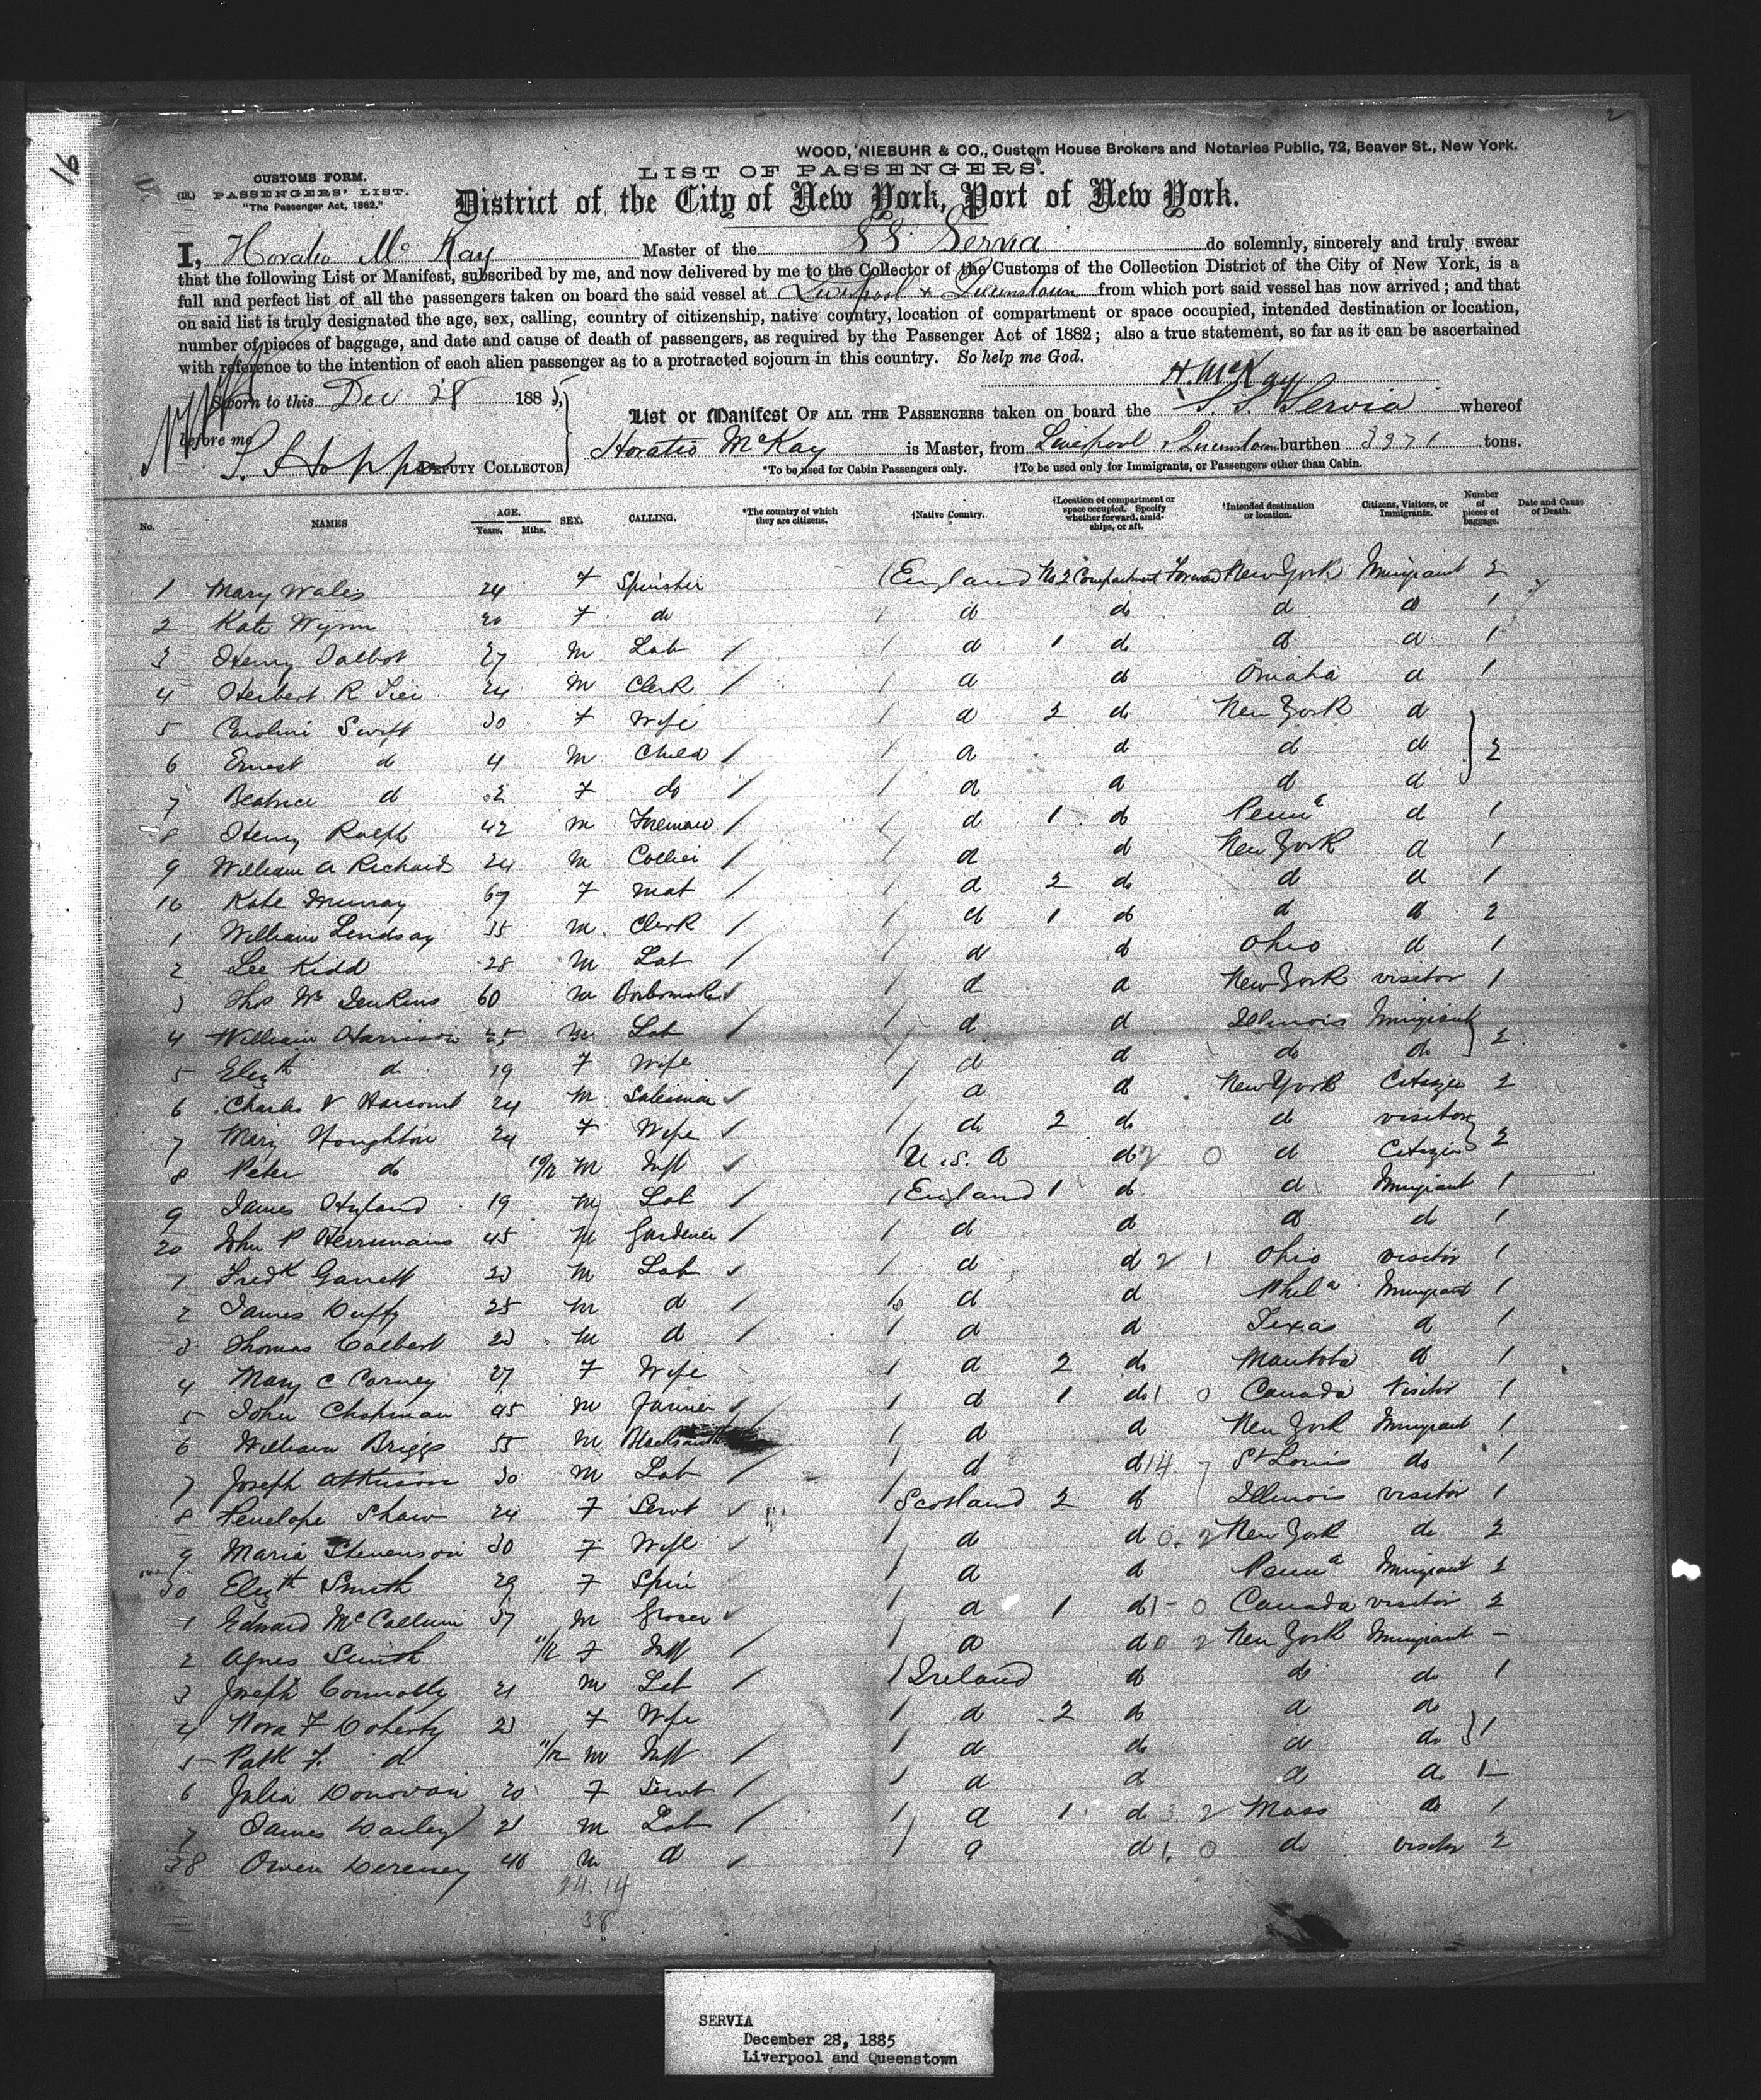 2
16
WOOD, NIEBUHR & CO., Custom House Brokers and Notaries Public, 72, Beaver St., New York.
LIST OF PASSENGERS.
CUSTOMS FORM.
(18.) PASSENGERS' LIST.
"The Passenger Act, 1882."
District of the City of New York, Port of New York.
I, Horatio McKay Master of the SS Servia do solemnly, sincerely and truly swear
that the following List or Manifest, subscribed by me, and now delivered by me to the Collector of the Customs of the Collection District of the City of New York, is a
full and perfect list of all the passengers taken on board the said vessel at Liverpool + Queenstown from which port said vessel has now arrived; and that
on said list is truly designated the age, sex, calling, country of citizenship, native country, location of compartment or space occupied, intended destination or location,
number of pieces of baggage, and date and cause of death of passengers, as required by the Passenger Act of 1882; also a true statement, so far as it can be ascertained
with reference to the intention of each alien passenger as to a protracted sojourn in this country. So help me God.
H. McKay
Sworn to this Dec 28 1885,
List or Manifest OF ALL THE PASSENGERS taken on board the S.S. Servia whereof
before me
Horatio McKay is Master, from Liverpool & Queenstown burthen 3971 tons.
DEPUTY COLLECTOR
*To be used for Cabin Passengers only. †To be used only for Immigrants, or Passengers other than Cabin.
No. NAMES AGE. Years. Mths. SEX. CALLING. *The country of which they are citizens. †Native Country. †Location of compartment or space occupied. Specify whether forward, amidships, or aft. †Intended destination or location. Citizens, Visitors, or Immigrants. Number of pieces of baggage. Date and Cause of Death.
1 Mary Wales 24 F Spinster England No 2 Compartment Forward New York Immigrant 2
2 Kate Wynn 20 F do d do d d 1
3 Henry Talbot 27 M Lab d 1 do d d 1
4 Herbert R 24 M Clerk d d Omaha d 1
5 Caroline Swift 30 F Wife d 2 do New York d
6 Ernest d 4 M Child d d d d 2
7 Beatrice d 2 F do d d d d
8 Henry Ralph 42 M d 1 d Penna d 1
9 William A Richards 24 M Collier d d New York d 1
10 Kate Murray 67 F Mat d 2 do d d 1
1 William Lendsay 35 M Clerk d 1 do d d 2
2 Lee Kidd 28 M Lab d d Ohio d 1
3 Thos Wm Jenkins 60 M d d New York visitor 1
4 William Harrison 25 M Lab d d Illinois Immigrant 2
5 Elizth d 19 F Wife d d do do
6 Charles V Harcourt 24 M Salesman d d New York Citizen 2
7 Mary Houghton 24 F Wife do 2 do do visitor 2
8 Peter do 10/12 M Inft U.S.A d 2 0 d Citizen
9 James Hyland 19 M Lab England 1 do d Immigrant 1
20 John P 45 M Gardener d d d do 1
1 Fredk Garrett 23 M Lab d d 2 1 Ohio visitor 1
2 James Duffy 25 M d d d Phila Immigrant 1
3 Thomas Colbert 23 M d d d Texas d 1
4 Mary C Carney 27 F Wife d 2 do Manitoba d 1
5 John Chapman 45 M Farmer d 1 do 1 0 Canada Visitor 1
6 William Briggs 55 M Blacksmith d d New York Immigrant 1
7 Joseph Atkinson 30 M Lab d d 14 7 St Louis do 1
8 Penelope Shaw 24 F Servt Scotland 2 d Illinois visitor 1
9 Maria Stevenson 30 F Wife d d 0 2 New York do 2
30 Elizth Smith 29 F Spin d d Penna Immigrant 2
1 Edward McCallum 37 M Grocer d 1 d 1 0 Canada visitor 2
2 Agnes Smith 11/12 F Inft d d 0 2 New York Immigrant –
3 Joseph Connolly 21 M Lab Ireland d do do 1
4 Nora F Doherty 23 F Wife d 2 d d do
5 Patk F. d 11/12 M Inft d do d do 1
6 Julia Donovan 20 F Servt d d d do 1
7 James Darley 21 M Lab d 1 d 3 2 Mass do 1
38 Owen 40 M d d d 1 0 do visitor 2
24.14
38
SERVIA
December 28, 1885
Liverpool and Queenstown